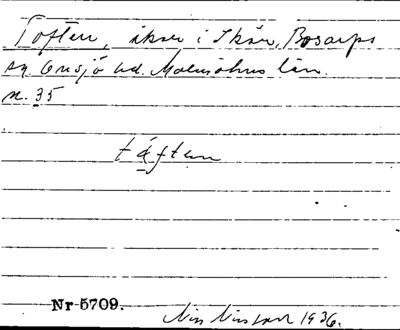 Toften, åker i Skår, Bosarps
sn. Onsjö hd. Malmöhus län.
n. 35
táften
Nr 5709.
1936.